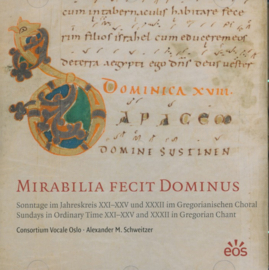 cum intabernaculis habitare fece
rim filios israhel cum educerem de
deterra aegypti ego dns deus vester
DOMINICA XVIII.
DA PACEM
DOMINE SUSTINEN
MIRABILIA FECIT DOMINUS
Sonntage im Jahreskreis XXI–XXV und XXXII im Gregorianischen Choral
Sundays in Ordinary Time XXI–XXV and XXXII in Gregorian Chant
Consortium Vocale Oslo · Alexander M. Schweitzer
eos